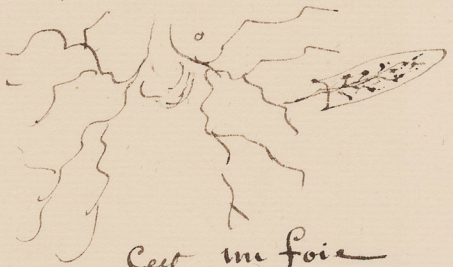 C'est un foie